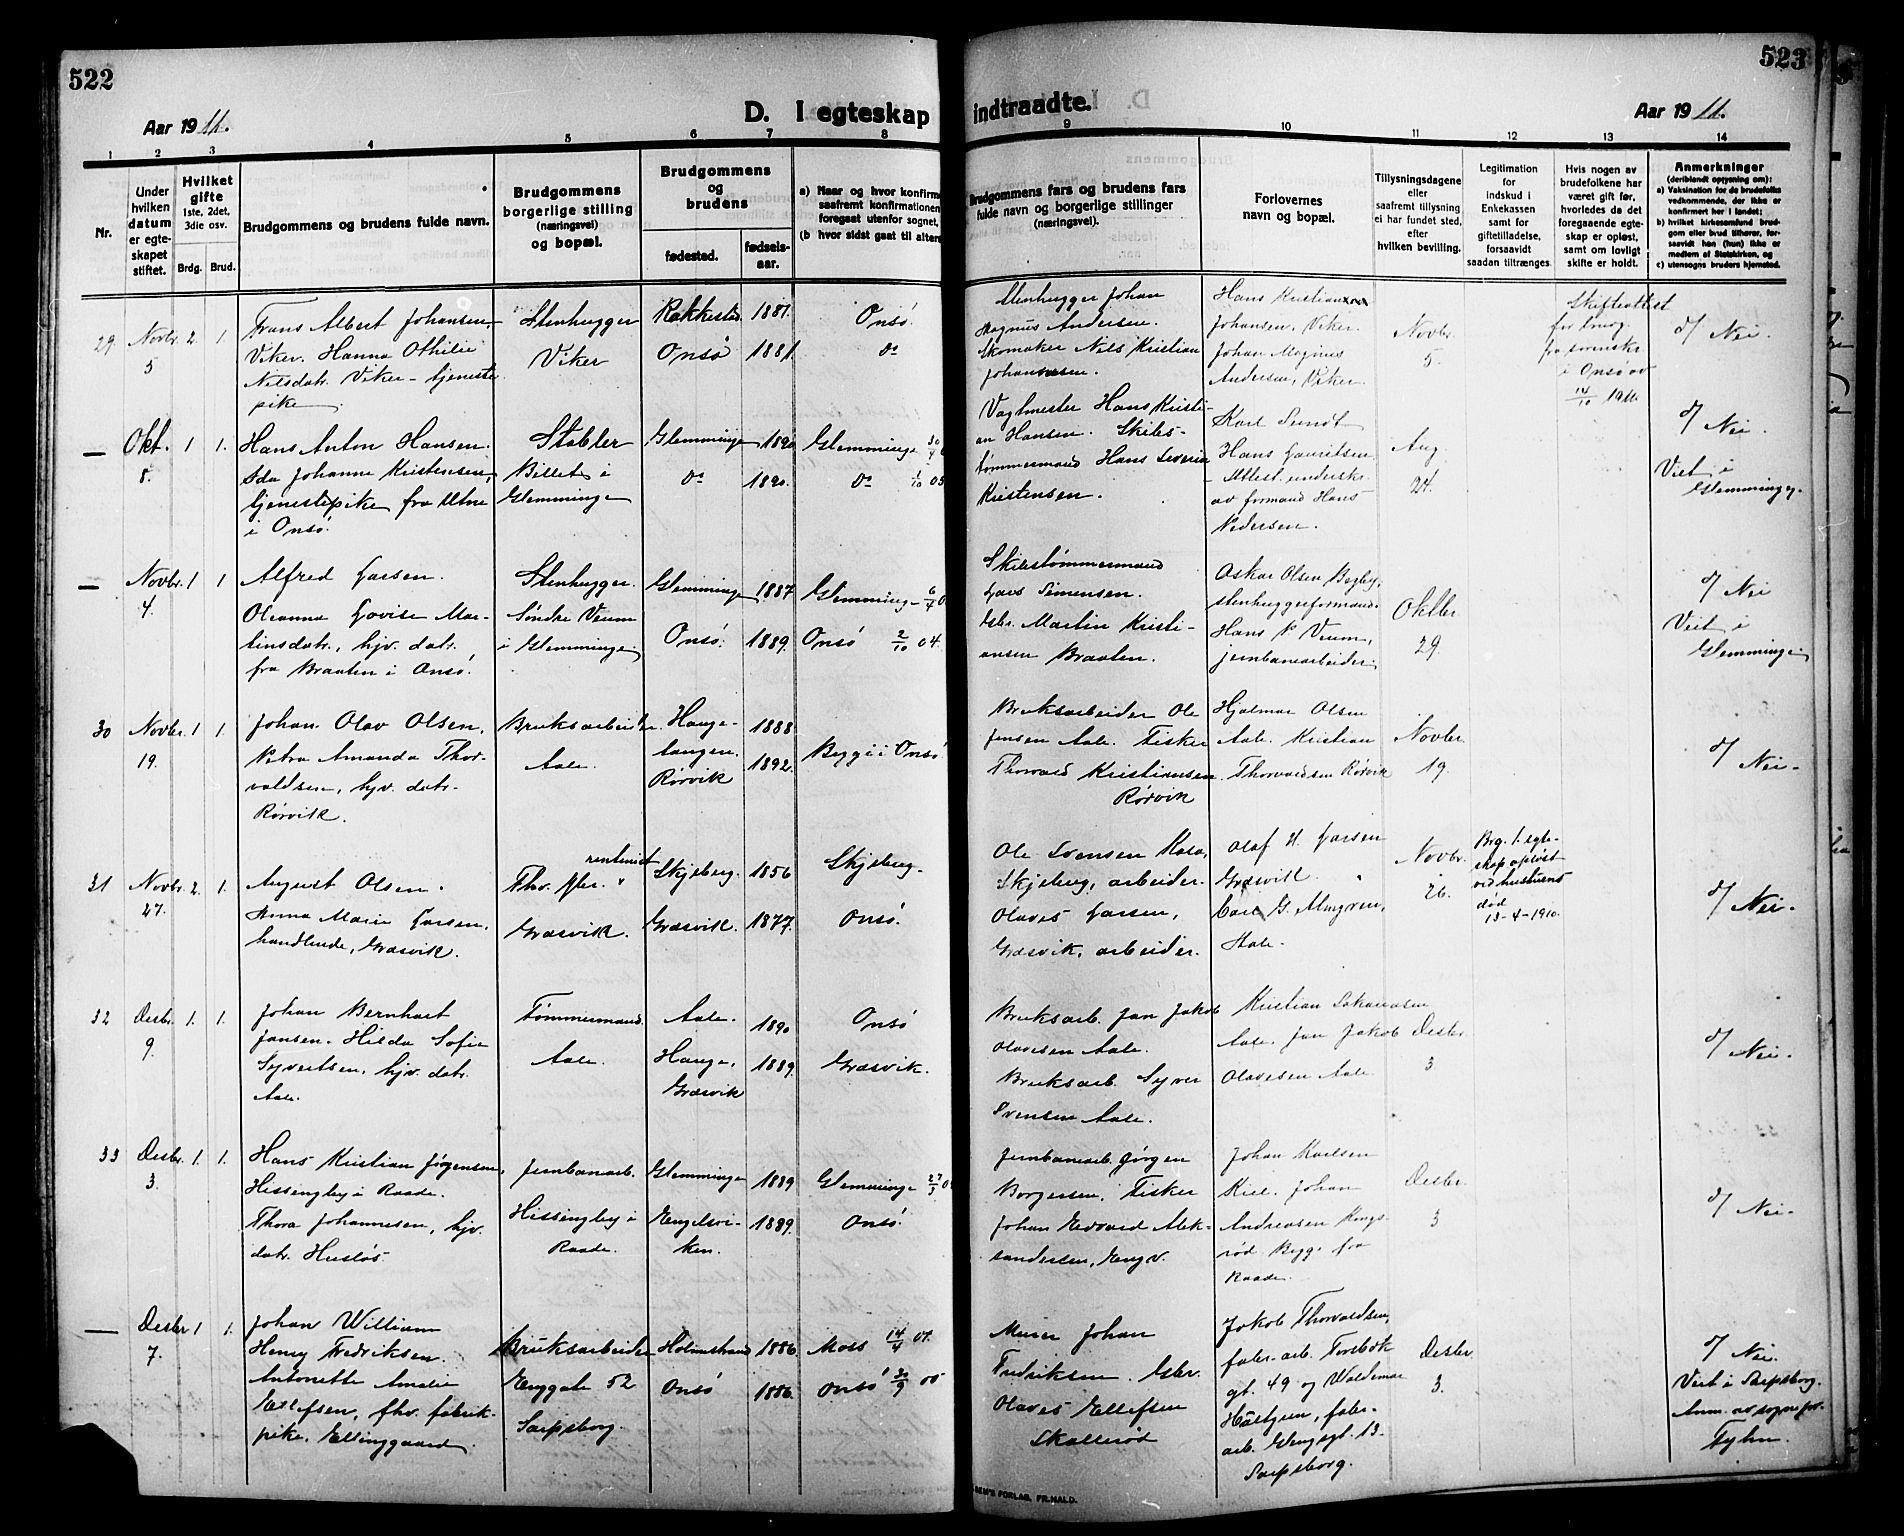 522
Aar 1911.
D. I egteskap
1
2
3
4
5
6
7
8
Nr.
Under
hvilken
datum
er egte-
skapet
stiftet.
Hvilket
gifte
1ste, 2det,
3die osv.
Brdg. Brud.
Brudgommens og brudens fulde navn.
Brudgommens
borgerlige stilling
(næringsvei)
og bopæl.
Brudgommens
og
brudens
fødested.
fødsels-
aar.
a) Naar og hvor konfirm
saafremt konfirmationen
foregaat utenfor sognet,
(b hvor sidst gaat til alters
29. Novbr. 5 2. 1.
Frans Albert Johansen,
Viker. Hanna Othilie
Nilsdatr. Viker - tjeneste
pike.
Stenhugger
Viker
Rakkestad. 1881.
Onsø 1881.
Onsø.
do
— Okt. 8. 1 1.
Hans Anton Hansen.
Ida Johanne Kristensen,
tjenestepike fra Utne
i Onsø.
Stabler
Billet i
Glemminge
Glemminge 1890
do 1890.
Glemminge 30/4
do 1/10 05
— Novbr. 4. 1 1
Alfred Larsen.
Oleanna Lovise Mar-
tinsdatr., hjv. datr.
fra Braaten i Onsø.
Stenhugger.
Søndre Veum
i Glemminge
Glemminge 1887
Onsø. 1889.
Glemminge 6/4 0
Onsø 2/10 04.
30 Novbr. 19. 1 1.
Johan Olav Olsen,
Petra Amanda Thor-
valdsen, hjv. datr.
Rørvik.
Bruksarbeider.
Aale.
Hauge-
tangen.
Rørvik
1888
1892.
Bygge i Onsø
31 Novbr. 27. 2. 1.
August Olsen.
Anna Marie Larsen,
handlende, Græsvik.
rentenist
Græsvik.
Skjeberg. 1856
Græsvik. 1877.
Skjeberg.
Onsø.
32 Desbr. 9. 1. 1.
Johan Bernhart
Jansen. Hilda Sofie
Syvertsen, hjv. datr.
Aale.
Tømmermand.
Aale.
Aale. 1890
Hauge, 1889.
Græsvik
Onsø
Græsvik.
33 Desbr. 3. 1. 1.
Hans Kristian Jørgensen,
Hissingby i Raade.
Thora Johannesen, hjv.
datr. Husløs.
Jernbanearb.
Hissingby i
Raade.
Glemminge 1889
Engelsvi- 1889.
ken.
Glemminge 27/3 0
Onsø.
— Desbr 7. 1 1.
Johan William
Henry Fredriksen.
Antonette Amalie
Ellefsen, fhv. fabrik-
pike, Ellinggaard.
Bruksarbeider
Enggate 52
Sarpsborg.
Holmestrand 1886.
Onsø 1886.
Moss 14/4 01.
Onsø 30/9 00
523
indtraadte.
Aar 1911.
9
10
11
12
13
14
Brudgommens fars og brudens fars
fulde navn og borgerlige stillinger
(næringsvei).
Forlovernes
navn og bopæl.
Tillysningsdagene
eller
saafremt tillysning
ei har fundet sted,
efter
hvilken bevilling.
Legitimation
for
indskud i
Enkekassen
samt for
giftetilladelse,
forsaavidt
saadan tiltrænges
Hvis nogen av
brudefolkene har
været gift før,
hvorledes da det
foregaaende egte-
skap er opløst,
samt om lovligt
skifte er holdt.
Anmerkninger
(deriblandt oplysning om):
a) Vaksination for de brudefolks
vedkommende, der ikke er
konfirmert her i landet;
b) hvilket kirkesamfund brud-
gom eller brud tilhører, for-
saavidt han (hun) ikke er
medlem af Statskirken, og
c) utensogns bruders hjemsted.
Stenhugger Johan
Magnus Andersen.
Skomaker Nils Kristian
Johannesen.
Hans Kristian
Johansen, Viker.
Johan Magnus
Andersen, Viker.
Novbr.
5.
Skifteattest
fra
i Onsø av
14/10 1911.
d/ Nei.
Vagtmester Hans Kristi-
an Hansen. Skibs-
tømmermand Hans Severin
Kristensen.
Karl Sundt
Hans Lauritsen
- Attest undersk.
av formand Hans
Pedersen.
Aug.
24.
d/ Nei.
Viet i
Glemminge.
Skibstømmermand
Lars Simensen.
Gbr. Martin Kristi-
ansen Braaten.
Oskar Olsen Begby,
stenhuggerformand.
Hans P. Veum,
jernbanearbeider.
Oktbr
29.
d/ Nei
Viet i
Glemminge
Bruksarbeider Ole
Jensen Aale. Fisker
Thorvald Kristiansen
Rørvik
Hjalmar Olsen
Aale. Kristian
Thorvaldsen Rørvik
Novbr.
19.
d/ Nei.
Ole Svensen Kala,
Skjeberg, arbeider.
Olaves Larsen,
Græsvik, arbeider.
Olaf H. Larsen
Græsvik.
Carl G. Almgren,
Aale.
Novbr.
26.
Brg. 1. egte-
skap opløst
ved hustruens
død
13-4-1910.
d/ Nei.
Bruksarb. Jan Jakob
Olavesen Aale.
Bruksarb. Syver
Svensen Aale.
Kristian Johansen
Aale. Jan Jakob
Olavesen Aale.
Desbr.
3
d/ Nei.
Jernbanearb. Jørgen
Borgersen, Fisker
Johan Edvard Alek-
sandersen, Engv.
Johan Karlsen
Kiel. Johan
Andreasen Kongs-
rød Bygge fra
Raade.
Desbr.
3
d/ Nei.
Murer Johan
Fredriksen. Gbr.
Olaves Ellefsen
Skallerød
Jakob Thorvaldsen,
fabr. arb. Torsbæk
gt. 49 og Waldemar
Hultgren, fabr.
arb. Glengsgt. 13.
Sarpsborg.
Desbr.
3.
d/ Nei.
Viet i Sarpsborg.
Anm. av sognepr.
Tyhn.
SEN'S FORLAG, FR.HALD.